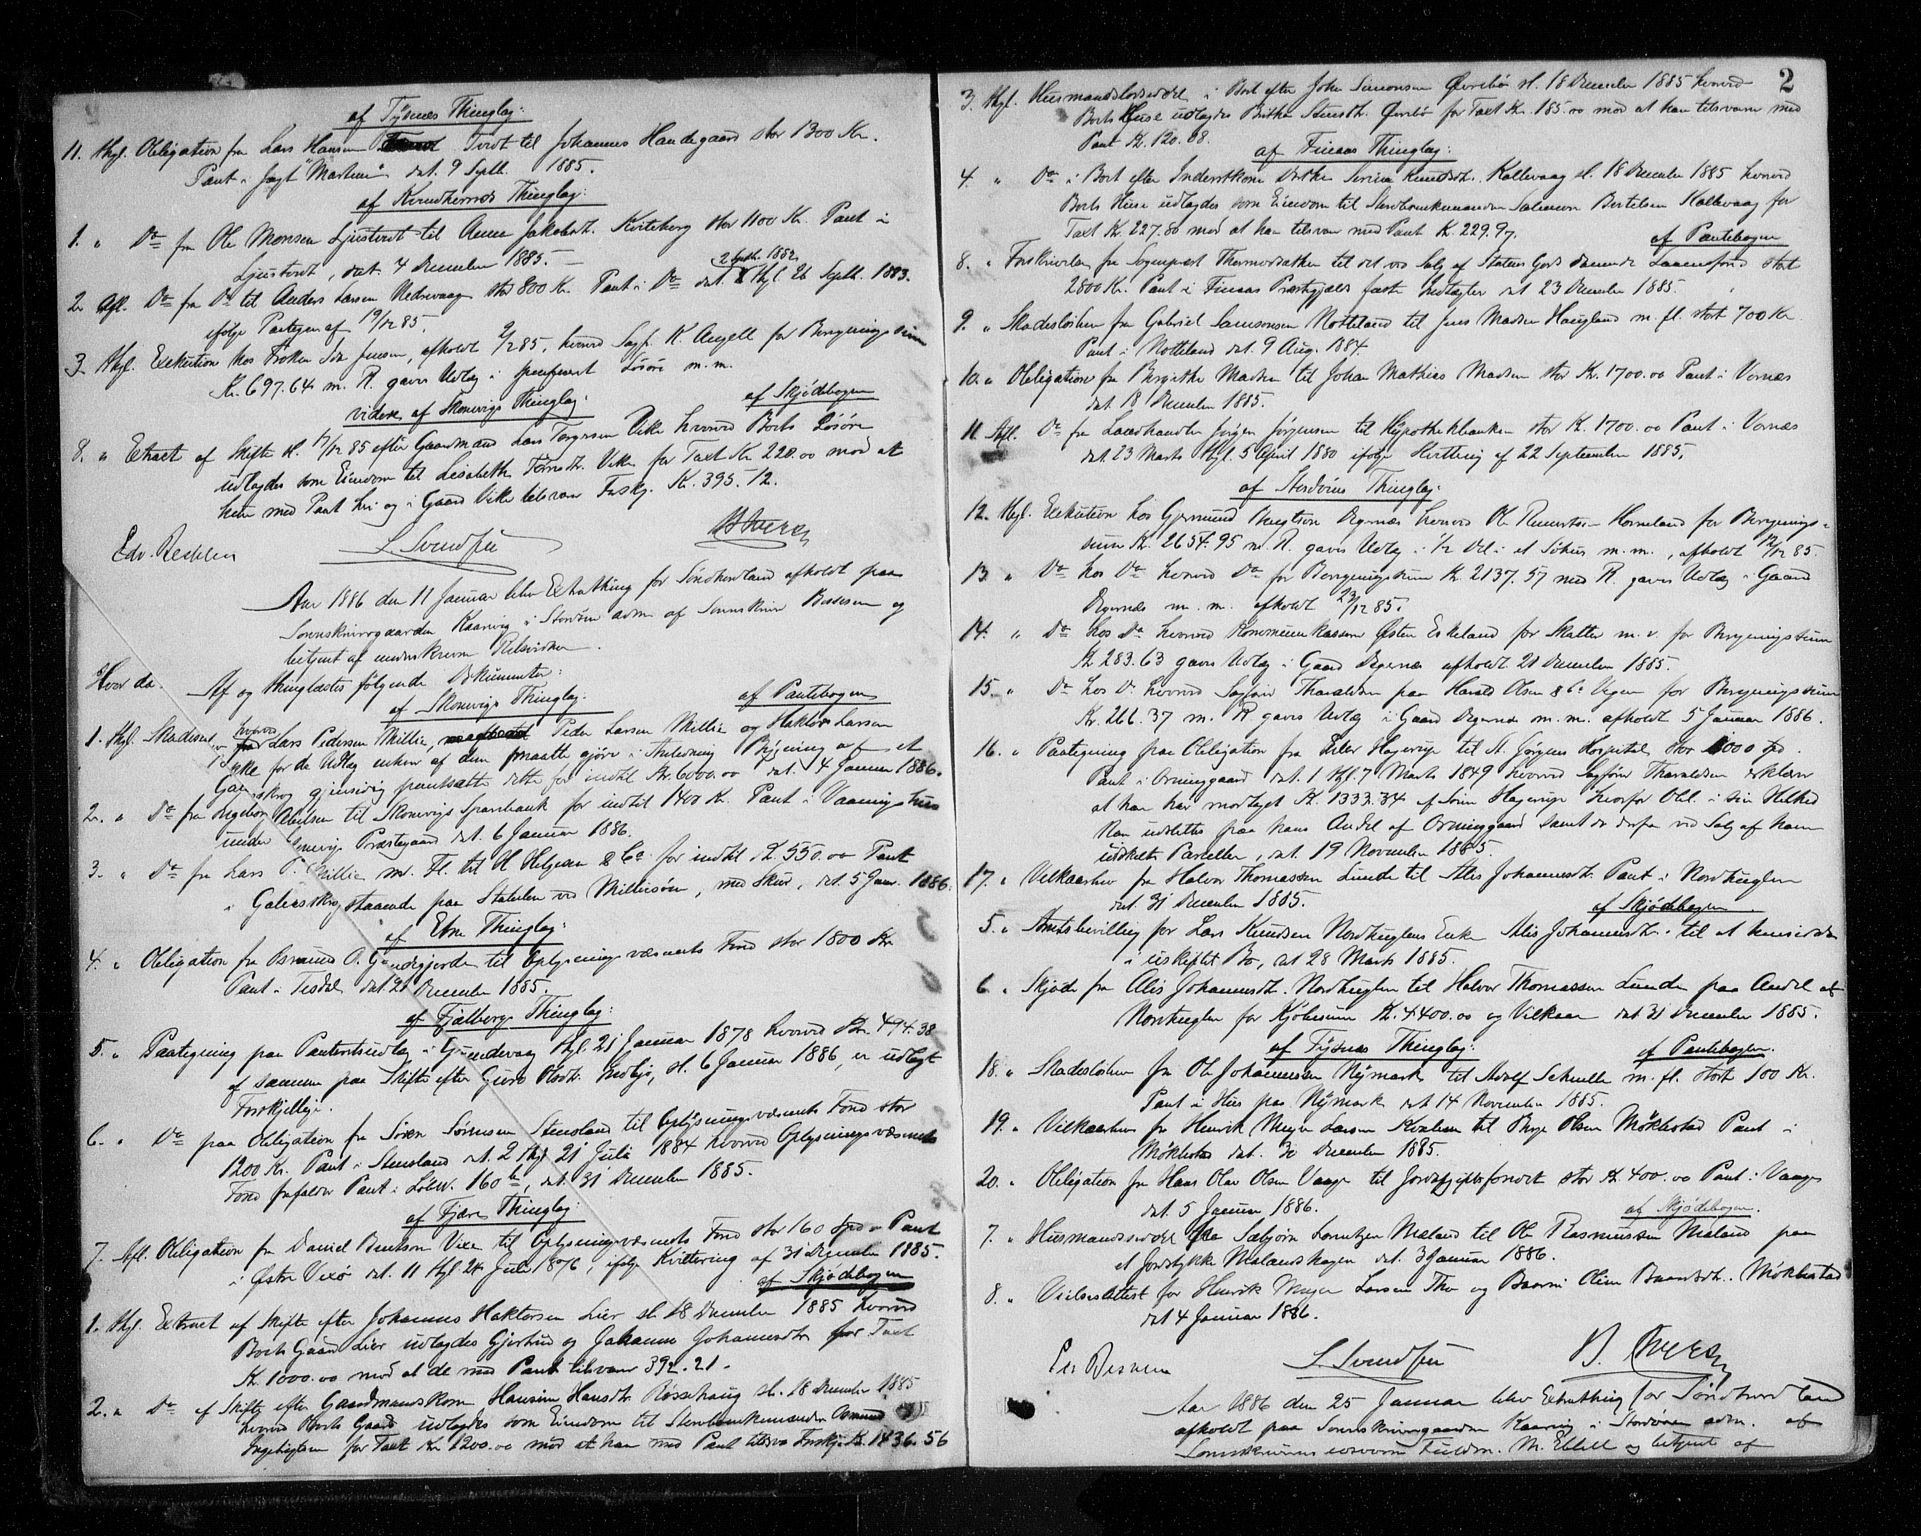 af Tysnæs Thinglag:
11. thgl. Obligation fra Lars Hansen Tvedt til Johannes Handegaard stor 1300 Kr.
Pant i Jagt "Martini" dat. 9 Septb. 1885.
af Kvindherreds Thinglag:
1. " Do fra Ole Monsen Ljustvedt til Anna Jakobsdt. Kviteberg stor 1100 Kr. Pant i
Ljustvedt, dat. 4 December 1885.
2 Septb. 1882
2. Afl. Do fra Do til Anders Larsen Nedrevaage stor 800 Kr. Pant i Do dat. thgl. 26 Septb. 1883.
ifølge Paategn. af 19/12 85.
3. thgl. Exekution hos Frøken Ida Jensen, afholdt 2/12 85, hvorved Sagf. K. Angell for Bergningssum
Kr. 697.64 m. R. gaves Udlæg i specificeret Løsøre m. m.
videre af Skonevigs Thinglag: af Skjødebogen
8. " Extract af Skifte sl. 17/12 85 efter Gaardmand Lars Torgersen Vike hvorved Boets Løsøre
udlagdes som Eiendom til Lisabeth Tørresdt. Vike for Taxt Kr. 220.00 mod at
hun med Pant heri og i Gaard Vike tilsvar Forskj. Kr. 395.12.
Edv. Reehlen L. Svendsen
Aar 1886 den 11 Januar blev Extrathing for Søndhordland afholdt paa
Sorenskrivergaarden Kaarvig i Stordøen adm. af Sorenskriver Bessesen og
betjent af underskrevne Retsvidner.
Hvor da: Af og thinglæstes følgende Dokumenter:
af Skonevigs Thinglag: af Pantebogen
1. thgl. Skadesl. hvorved Lars Pedersen Millie, Peder Larsen Millie og Haktor Larsen
Lykke for de Udlæg enhver af dem maatte gjøre i Anledning Bygning af et
Galeasskrog gjensidig pantsætte dette for indtil Kr. 6000.00 dat. 4 Januar 1886.
2. " Do fra Ingeborg Abelsen til Skonevigs Sparebank for indtil 1400 Kr. Pant i Vaaningshus
under Skonevigs Præstegaard dat. 6 Januar 1886.
3. " Do fra Lars P. Millie m. Fl. til H. Helgesen & Co. for indtil Kr. 550.00 Pant
i Galeasskrog staaende paa Stabelen ved Milliesøen, med Skur, dat. 5 Januar 1886.
af Etne Thinglag:
4. " Obligation fra Asmund O. Grindegjerde til Oplysningsvæsenets Fond stor 1800 Kr.
Pant i Tesdal dat 21 December 1885.
af Fjelbergs Thinglag:
5. " Paategning paa Panteretsudlæg i Grindevaag thgl. 21 Januar 1878 hvorved Kr. 494.38
af samme paa Skifte efter Guro Olsdt. Indbjo, sl. 6 Januar 1886, er udlagt
Forskjellige.
6. " Do paa Obligation fra Søren Sørensen Stensland til Oplysningsvæsenets Fond stor
1200 Kr. Pant i Stensland dat. 2 thgl 21 Juli 1884 hvorved Oplysningsvæsenets
Fond frafalder Pant i Løbnr. 160 b, dat. 31 December 1885.
af Fjære Thinglag:
7. Afl. Obligation fra Daniel Bentsen Vixe til Oplysningsvæsenets Fond stor 160 Spd. Pant
i Østre Vixø dat. 11 thgl 24 Juli 1876, ifølge Kvittering af 31 December 1885.
af Skjødebogen
1. thgl. Extract af Skifte efter Johannes Haktorsen Lier sl. 18 December 1885 hvorved
Boets Gaard Lier udlagdes Gjertrud og Johanne Johannesdt. for Taxt
Kr. 1000.00 mod at de med Pant tilsvare 392.21.
2. " Do af Skifte efter Gaardmandskone Hansine Hansdt. Rossehaug sl. 18 December 1885
hvorved Boets Gaard udlagdes som Eiendom til Stervboenkemanden Asmund
for Taxt Kr. 1200.00 mod at han med Pant tilsvar Forskj. Kr. 1436.56
2
3. thgl. Husmandsbrevsedel i Boet efter John Simonsen Øvrebø sl. 18 December 1885 hvorved
Boets Huse udlagdes Brithe Stensdt. Øvrebø for Taxt Kr. 185.00 mod at han tilsvarer med
Pant Kr. 120.08.
af Finaas Thinglag:
4. " Do i Boet efter Inderstkone Dorthe Serine Knudsdt. Kallevaag sl. 18 December 1885 hvorved
Boets Huse udlagdes som Eiendom til Stervboenkemanden Salamon Bertelsen Kallevaag for
Taxt Kr. 227.80 mod at han tilsvar med Pant Kr. 229.97.
af Pantebogen
8. " Forskrivelse fra Sogneprest Thormodsæther til det ved Salg af Statens Gods dannede Laanefond stort
2800 Kr. Pant i Finaas Præstegjelds faste Indtægter dat 23 December 1885.
9. " Skadesløsbrev fra Gabriel Samsonsen Notteland til Jens Madsen Haugland m. fl. stort 700 Kr.
Pant i Notteland dat. 9 Aug. 1884.
10. " Obligation fra Birgithe Madsen til Johan Mathias Madsen stor Kr. 1700.00 Pant i Vornæs
dat 18 December 1885.
11. Afl. Do fra Landhandler Jørgen Jørgensen til Hypothekbanken stor Kr. 1700.00 Pant i Vornæs
dat. 23 Marts thgl. 5 April 1880 ifølge Kvittering af 22 September 1885.
af Stordøens Thinglag:
12. thgl. Exekution hos Gjermund Digernæs hvorved Ole Rasmussen Horneland for Bergnings-
sum Kr. 2654.95 m. R. gaves Udlæg i 1/2 Del i et Søhus m. m., afholdt 12/12 85.
13. " Do hos Do hvorved Do for Bergningssum Kr. 2137.57 med R. gaves Udlæg i Gaard
Digernæs m. m. afholdt 23/12 85.
14. " Do hos Do hvorved Kommunekasserer Østen Eskeland for Skatter m. v. for Bergningssum
Kr. 283.63 gaves Udlæg i Gaard Digernæs afholdt 21 December 1885.
15. " Do hos Do hvorved Sagfører Tharaldsen paa Harald Olsen & Co. Vegne for Bergningssum
Kr. 266.37 m. R. gaves Udlæg i Gaard Digernæs m. m. afholdt 5 Januar 1886.
16. " Paategning paa Obligation fra Eiler Hagerup til St. Jørgens Hospital stor 1000 Spd.
Pant i Orninggaard dat. 1 thgl. 7 Marts 1849 hvorved Sagfører Tharaldsen erklærer
at han har modtaget Kr. 1333.34 af Søren Hagerup hvorfor Obl. i sin Helhed
kan udslettes paa hans Andel af Orninggaard samt de derfra ved Salg af ham
udskilte Parceller, dat. 19 November 1885.
17. " Vilkaarsbrev fra Halvor Thomassen Lunde til Alis Johannesdt. Pant i Nordhuglen
dat. 31 December 1885.
af Skjødebogen
5. " Amtsbevilling for Lars Knudsen Nordhuglens Enke Alis Johannesdt. til at hensidde
i uskiftet Bo, dat 28 Marts 1885.
6. " Skjøde fra Alis Johannesdt. Nordhuglen til Halvor Thomassen Lunde paa Andel af
Nordhuglen for Kjøbesum Kr. 4400.00 og Vilkaar dat 31 December 1885.
af Tysnæs Thinglag: af Pantebogen.
18. " Skadesløsbrev fra Ole Johannessen Nymark til Adolf Schnelle m. fl. stort 100 Kr.
Pant i Hus paa Nymark dat 14 November 1885.
19. " Vilkaarsbrev fra Henrik Meyer Larsen Kvalem til Børge Olsen Møklestad Pant i
Møklestad dat. 30 December 1885.
20. " Obligation fra Hans Olai Olsen Vaage til Jordafgiftsfondet stor Kr. 400.00 Pant i Vaage
dat. 5 Januar 1886.
af Skjødebogen.
7. " Husmandsseddel fra Sæbjørn Lorentzen Mæland til Ole Rasmussen Mæland paa
et Jordstykke Mælandshagen dat. 3 Januar 1886.
8. " Vielsesattest for Henrik Meyer Larsen Tho og Baarni Oline Baardsdt. Møklestad
dat 4 Januar 1886.
L. Svendsen
Aar 1886 den 25 Januar blev Extrathing for Søndhordland
afholdt paa Sorenskrivergaarden Kaarvig i Stordøen adm. af
Sorenskriverens edsvorne Fuldm. M. Ebbell og betjent af